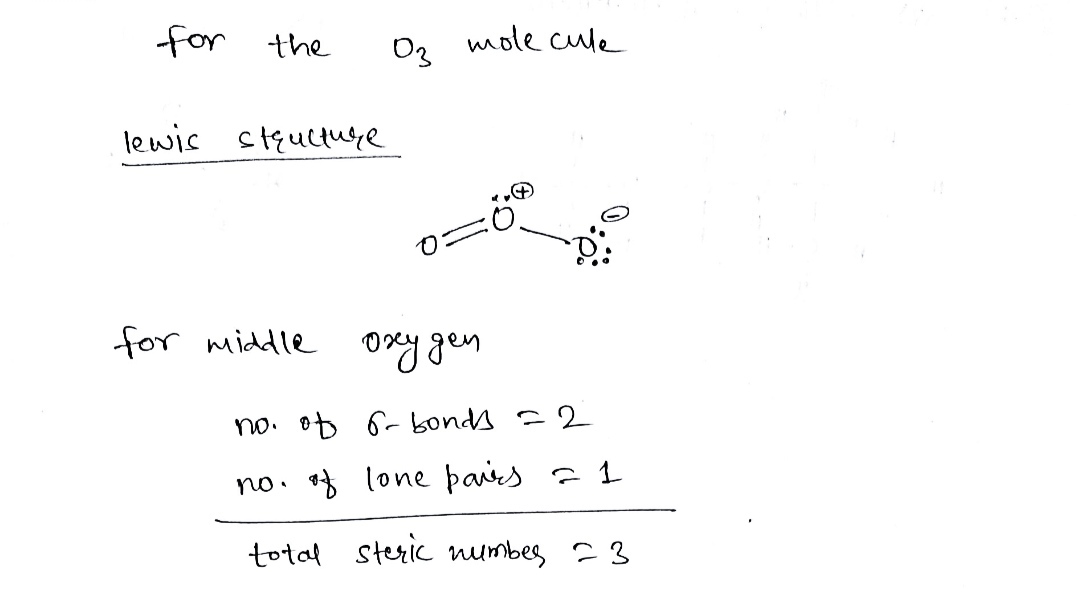 for the O₃ molecule
lewis structure
O=O⊕-O⊖
for middle oxygen
no. of σ-bonds = 2
no. of lone pairs = 1
total steric number = 3